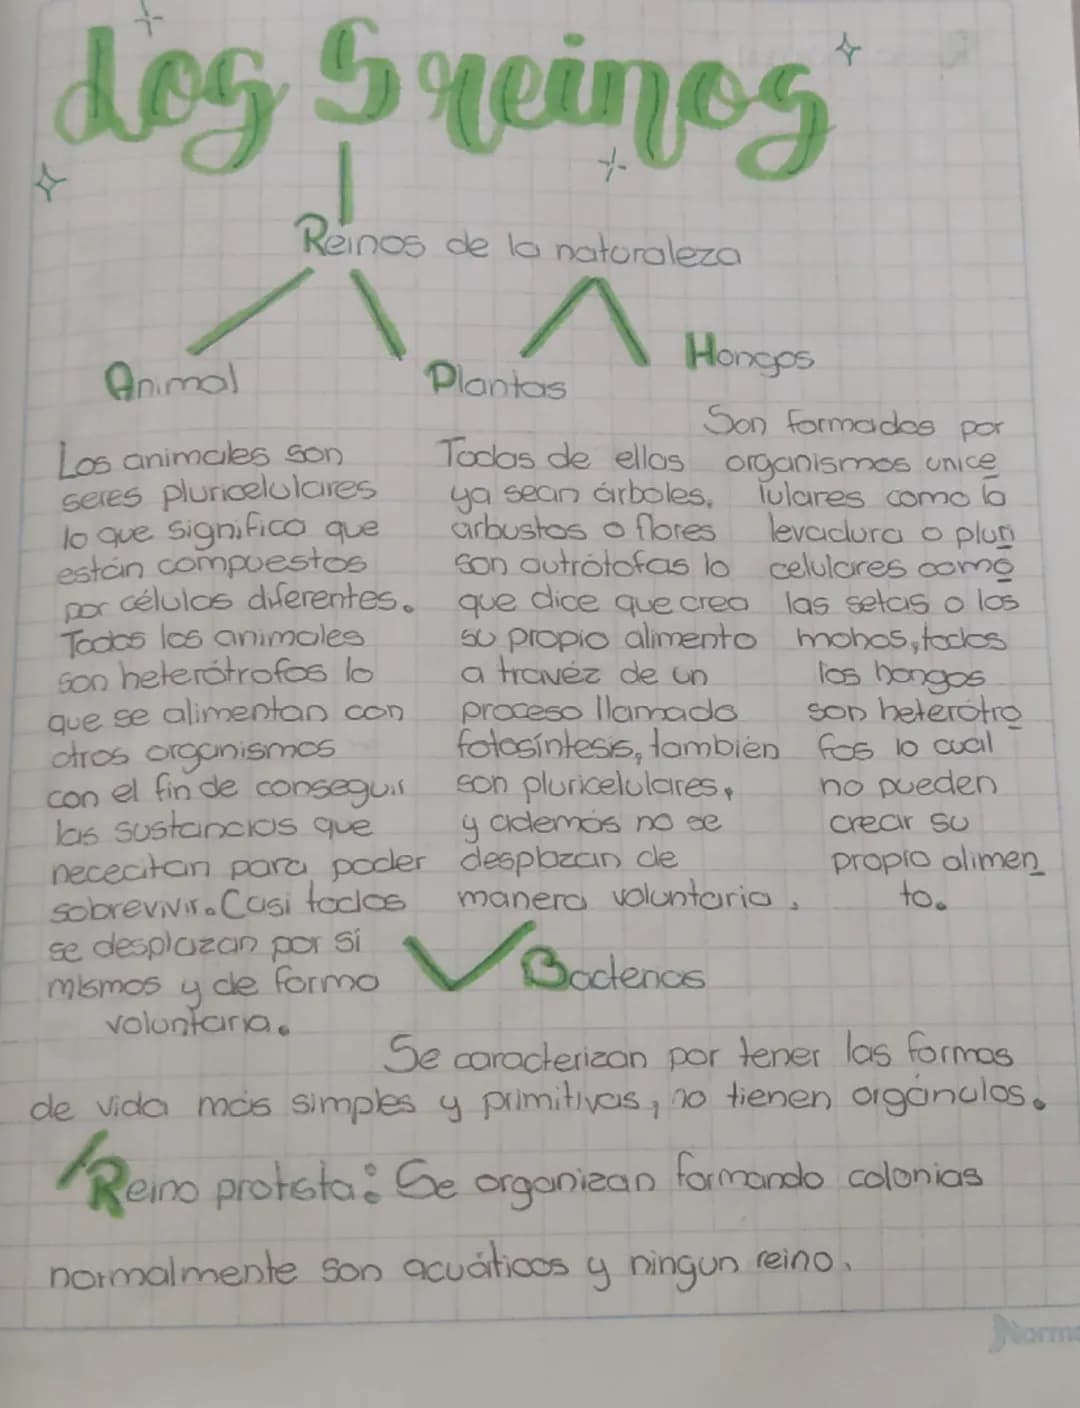 Los 5 reinos
Reinos de la naturaleza
Animal
Los animales son
seres pluricelulares
lo que significa que
están compuestos
por células diferentes.
Todos los animales
son heterótrofos lo
que se alimentan con
otros organismos
con el fin de conseguir
las sustancias que
nececitan para poder
sobrevivir. Casi todos
se desplazan por sí
mismos y de forma
voluntaria.
Plantas
Todas de ellas
ya sean árboles,
arbustos o flores
son autrótofas lo
que dice que crea
su propio alimento
a travéz de un
proceso llamado
fotosíntesis, también
son pluricelulares,
y además no se
desplazan de
manera voluntaria.
Hongos
Son formados por
organismos unice
lulares como la
levadura o pluri
celulares como
las setas o los
mohos, todos
los hongos
son heterótro
fos lo cual
no pueden
crear su
propio alimen
to.
Bacterias
Se caracterizan por tener las formas
de vida más simples y primitivas, no tienen orgánulos.
Reino protista: Se organizan formando colonias
normalmente son acuáticos y ningun reino.
Norma